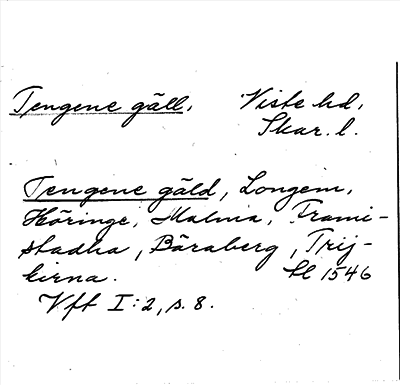 Tengene gäll, Viste hd,
Skar. l.
Tengene gäld, Longem,
Häringe, Malma, Frami-
stadha, Bäraberg, Trij-
kirna. hl 1546
Vft I:2, s. 8.